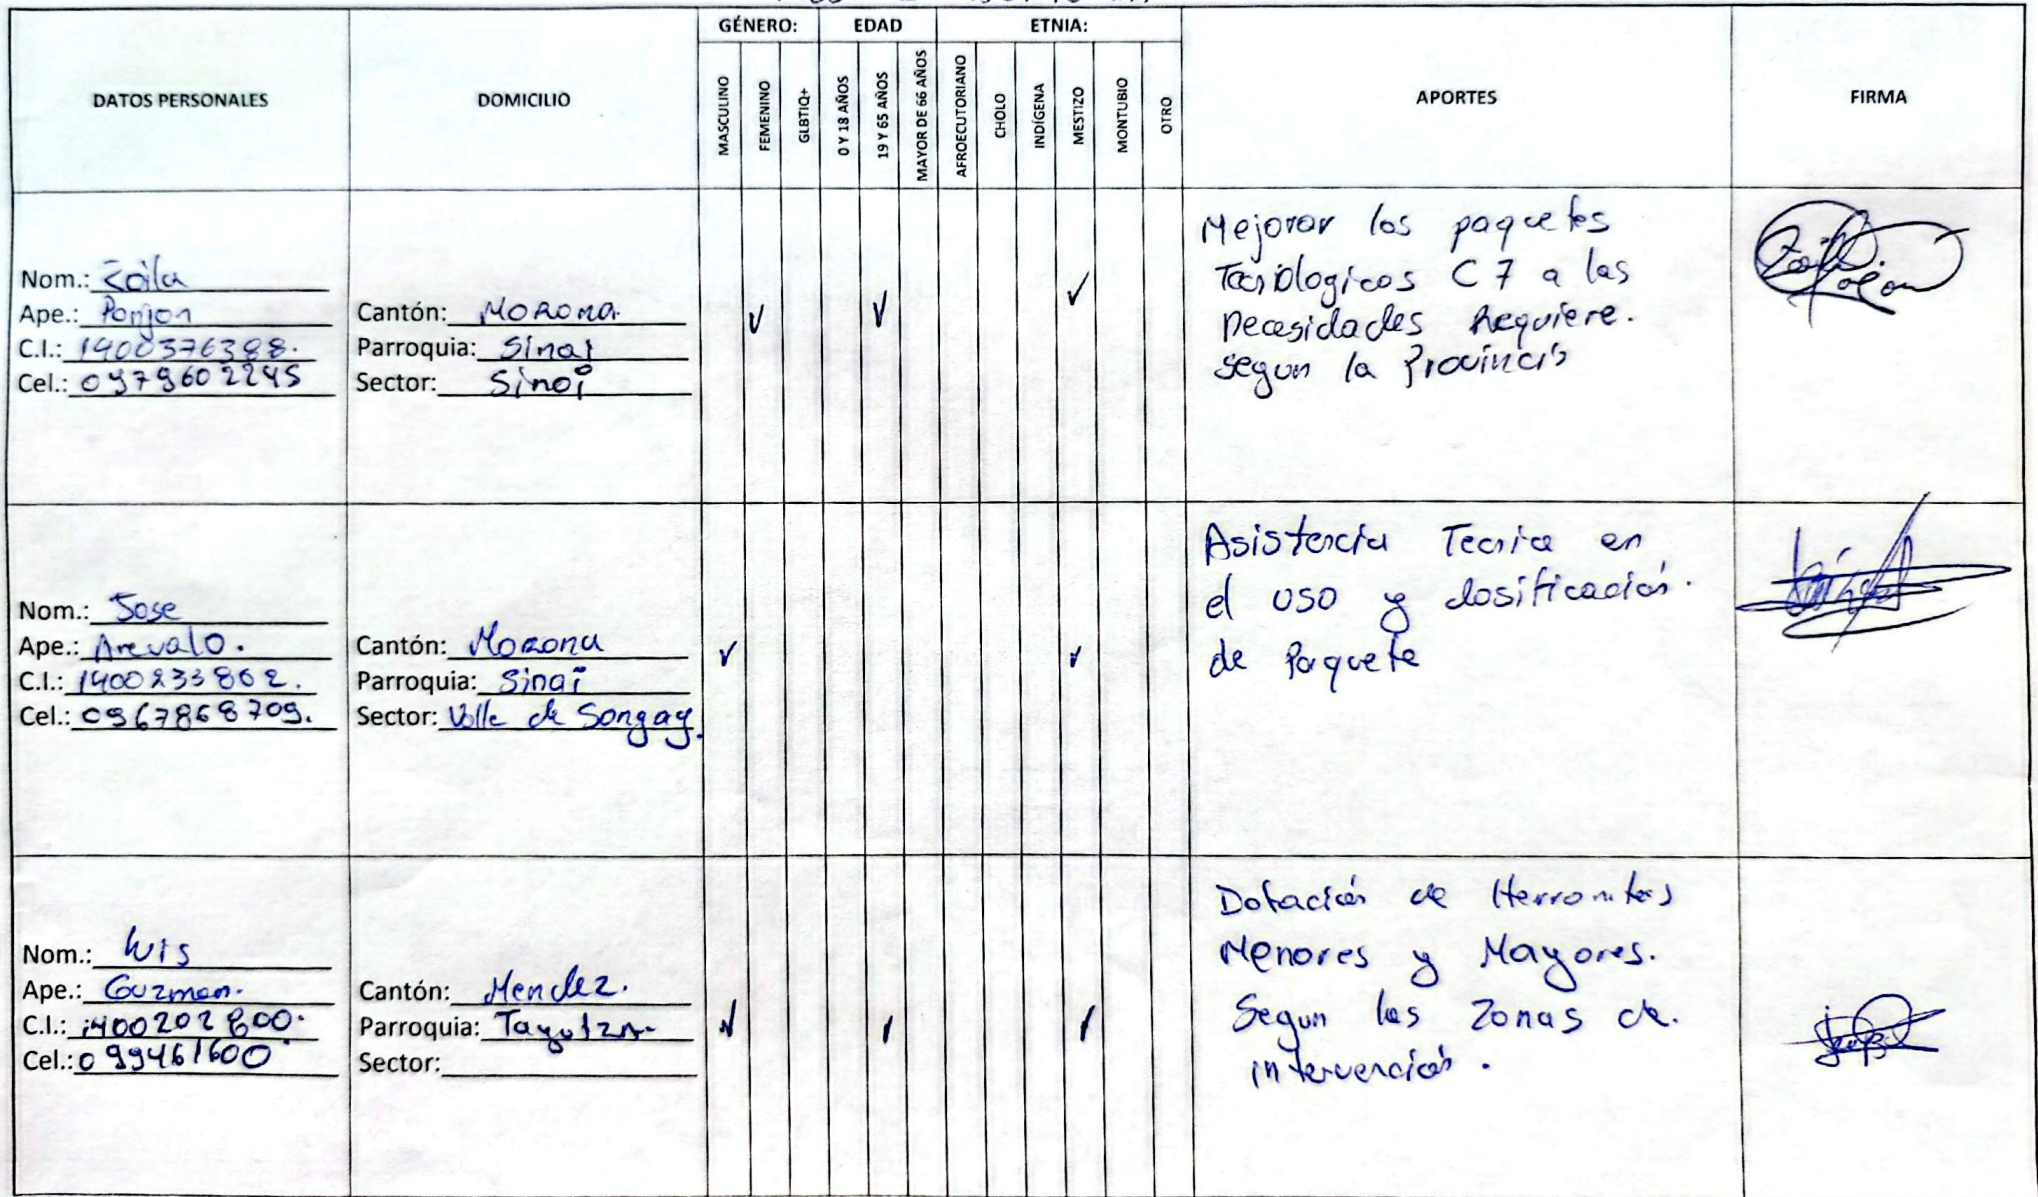 GÉNERO: EDAD ETNIA:
DATOS PERSONALES DOMICILIO MASCULINO FEMENINO GLBTIQ+ 0 Y 18 AÑOS 19 Y 65 AÑOS MAYOR DE 66 AÑOS AFROECUTORIANO CHOLO INDÍGENA MESTIZO MONTUBIO OTRO APORTES FIRMA
Nom.: Zoila
Ape.: Ponjon
C.I.: 1400376388.
Cel.: 0979602245
Cantón: Morona.
Parroquia: Sinai
Sector: Sinai
✓ ✓ ✓
Mejorar los paquetes
Tecnologicos C 7 a las
necesidades Requiere.
segun la Provincia
Nom.: Jose
Ape.: Arevalo.
C.I.: 1400233862.
Cel.: 0967868709.
Cantón: Morona
Parroquia: Sinai
Sector: Valle de Songay.
✓ ✓
Asistencia Tecnica en
el uso y dosificación.
de Paquete
Nom.: Luis
Ape.: Guzman.
C.I.: 1400202800.
Cel.: 099461600
Cantón: Mendez.
Parroquia:
Sector:
✓ ✓ ✓
Dotación de
Menores y Mayores.
Segun las Zonas de.
intervención.